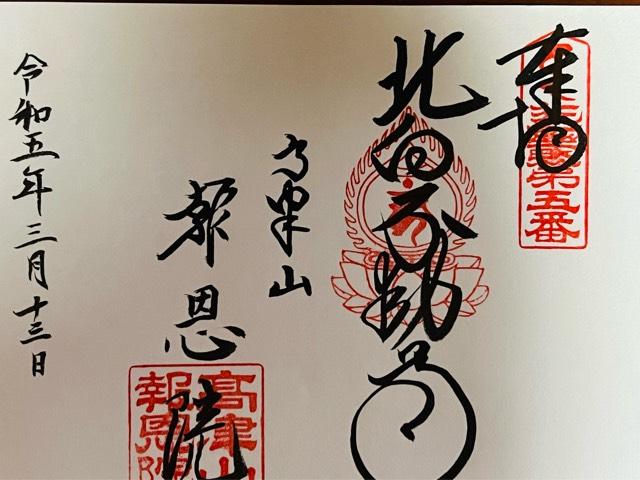 奉拝
第五番
北向不動尊
高津山
報恩院
高津山
報恩院
令和五年三月十三日